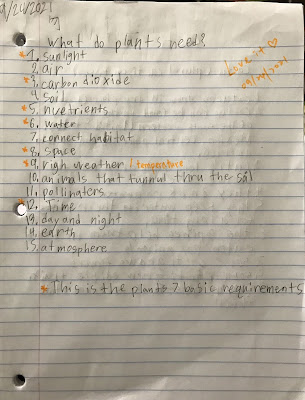 9/20/2021
What do plants need?
Love it ♡
09/20/2021
*1. sunlight
2. air
*3. carbon dioxide
4. Soil
*5. nuetrients
*6. water
7. connect habitat
*8. space
*9. righ weather / temperature
10. animals that tunnul thru the soil
11. pollinaters
*12. Time
13. day and night
14. earth
15. atmosphere
*This is the plants 7 basic requirements